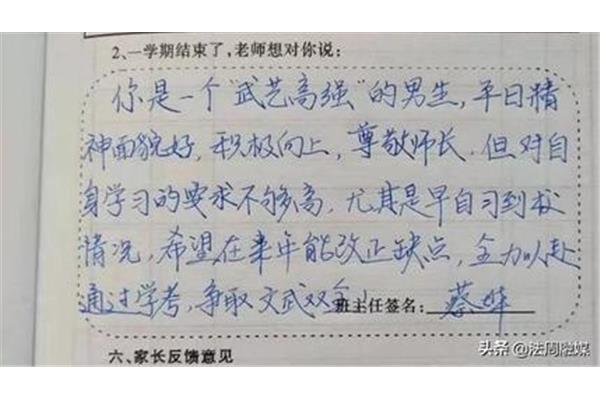 2、一学期结束了,老师想对你说:
你是一个“武艺高强”的男生,平日精
神面貌好,积极向上,尊敬师长.但对自
身学习的要求不够高,尤其是早自习到校
情况,希望在来年能改正缺点,全力以赴
通过学考,争取文武双全!
班主任签名:蔡
六、家长反馈意见
头条 @法周融媒